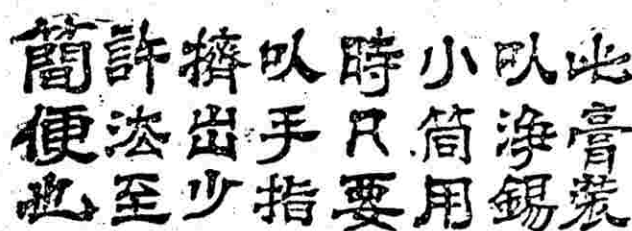 此膏裝
以淨錫
小筒用
時只要
以手指
擠出少
許法至
簡便也